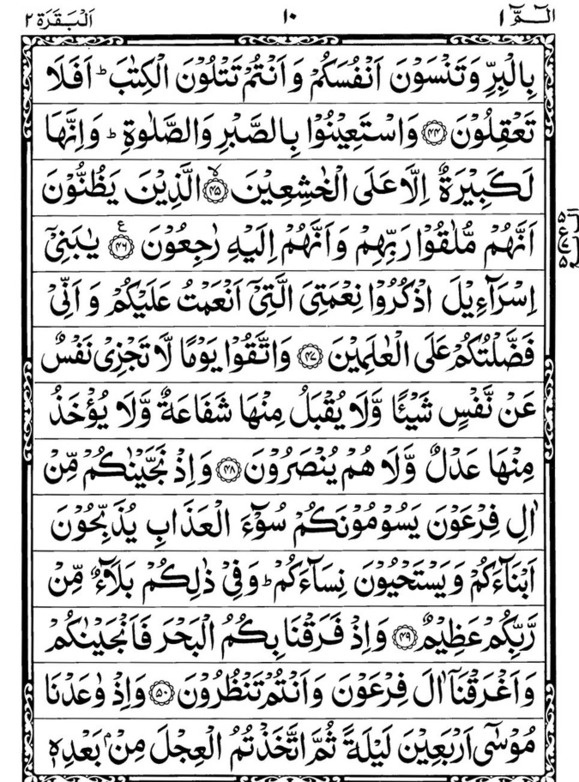 الٓمّٓ ١ ١٠ اَلْبَقَرَة ٢
بِالْبِرِّ وَتَنْسَوْنَ اَنْفُسَكُمْ وَاَنْتُمْ تَتْلُوْنَ الْكِتٰبَ ؕ اَفَلَا
تَعْقِلُوْنَ ﴿۴۴﴾ وَاسْتَعِيْنُوْا بِالصَّبْرِ وَالصَّلٰوةِ ؕ وَاِنَّهَا
لَكَبِيْرَةٌ اِلَّا عَلَى الْخٰشِعِيْنَ ﴿۴۵﴾ۙ الَّذِيْنَ يَظُنُّوْنَ
اَنَّهُمْ مُّلٰقُوْا رَبِّهِمْ وَاَنَّهُمْ اِلَيْهِ رٰجِعُوْنَ ﴿۴۶﴾ ع يٰبَنِيْۤ
اِسْرَآءِيْلَ اذْكُرُوْا نِعْمَتِيَ الَّتِيْۤ اَنْعَمْتُ عَلَيْكُمْ وَاَنِّيْ
فَضَّلْتُكُمْ عَلَى الْعٰلَمِيْنَ ﴿۴۷﴾ وَاتَّقُوْا يَوْمًا لَّا تَجْزِيْ نَفْسٌ
عَنْ نَّفْسٍ شَيْئًا وَّلَا يُقْبَلُ مِنْهَا شَفَاعَةٌ وَّلَا يُؤْخَذُ
مِنْهَا عَدْلٌ وَّلَا هُمْ يُنْصَرُوْنَ ﴿۴۸﴾ وَاِذْ نَجَّيْنٰكُمْ مِّنْ
اٰلِ فِرْعَوْنَ يَسُوْمُوْنَكُمْ سُوْٓءَ الْعَذَابِ يُذَبِّحُوْنَ
اَبْنَآءَكُمْ وَيَسْتَحْيُوْنَ نِسَآءَكُمْ ؕ وَفِيْ ذٰلِكُمْ بَلَآءٌ مِّنْ
رَّبِّكُمْ عَظِيْمٌ ﴿۴۹﴾ وَاِذْ فَرَقْنَا بِكُمُ الْبَحْرَ فَاَنْجَيْنٰكُمْ
وَاَغْرَقْنَاۤ اٰلَ فِرْعَوْنَ وَاَنْتُمْ تَنْظُرُوْنَ ﴿۵۰﴾ وَاِذْ وٰعَدْنَا
مُوْسٰۤى اَرْبَعِيْنَ لَيْلَةً ثُمَّ اتَّخَذْتُمُ الْعِجْلَ مِنْۢ بَعْدِهٖ